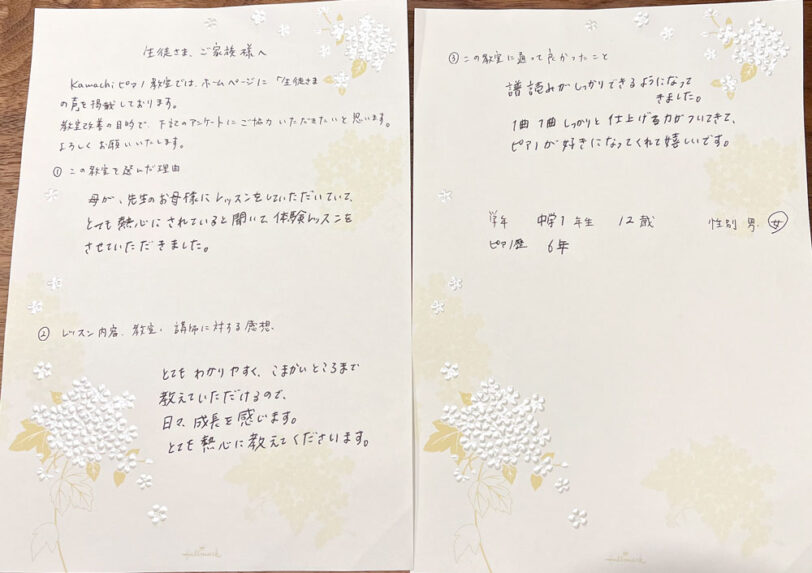 生徒さま、ご家族様へ
Kamachiピアノ教室では、ホームページに「生徒さま
の声を掲載しております。
教室改善の目的で、下記のアンケートにご協力いただきたいと思います。
よろしくお願いいたします。
① この教室を選んだ理由
母が、先生のお母様にレッスンをしていただいていて、
とても熱心にされていると聞いて、体験レッスンを
させていただきました。
② レッスン内容、教室・講師に対する感想、
とてもわかりやすく、こまかいところまで
教えていただけるので、
日々、成長を感じます。
とても熱心に教えてくださいます。
Hallmark
③ この教室に通って良かったこと
譜読みがしっかりできるようになって
きました。
1曲1曲しっかりと仕上げる力がついてきて、
ピアノが好きになってくれて嬉しいです。
学年 中学1年生 12歳 性別 男・女
ピアノ歴 6年
Hallmark